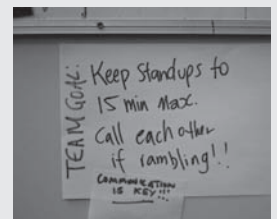 TEAM GOAL:
Keep standups to
15 min Max.
Call each other
if rambling!!
COMMUNICATION
IS KEY!!!